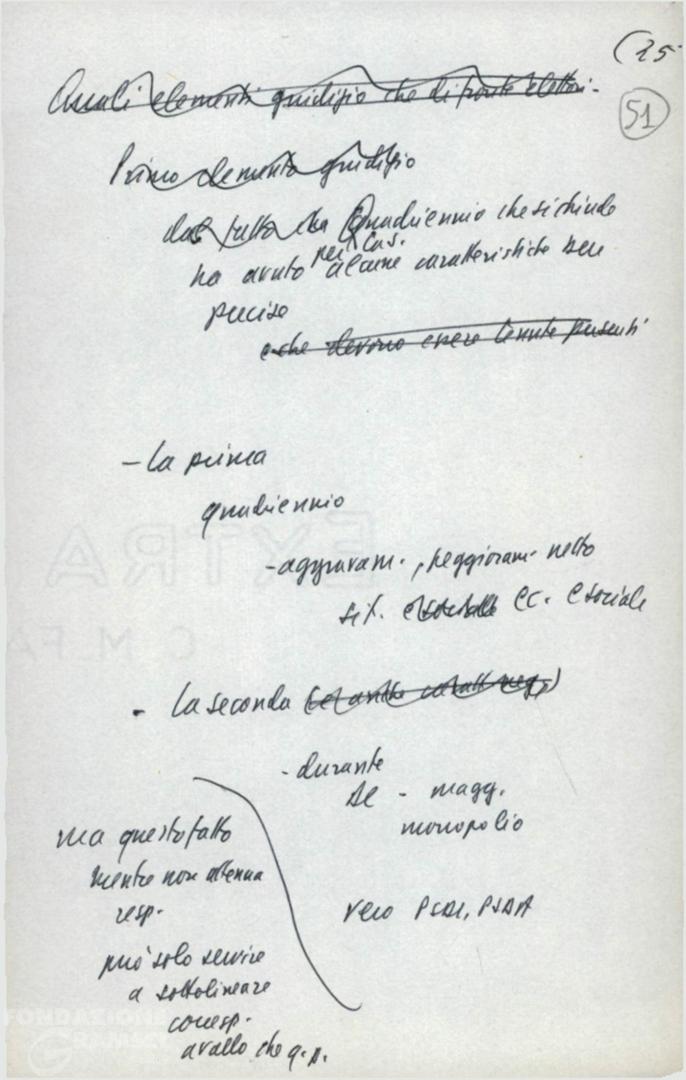 (25
51
Quali elementi giudizio che di fronte elettori-
Primo elemento giudizio
dal fatto che Quadriennio che si chiude
per Cons.
ha avuto alcune caratteristiche ben
precise
e che devono essere tenute presenti
- La prima
quadriennio
- aggravam., peggioram. netto
sit. ec. e sociale
- La seconda
- durante
DC - magg.
monopolio
vero PSDI, PSDA
ma questo fatto
mentre non attenua
resp.
può solo servire
a sottolineare
corresp.
avallo che q.p.
EXTRA
C M FA
FONDAZIONE
GRAMSCI